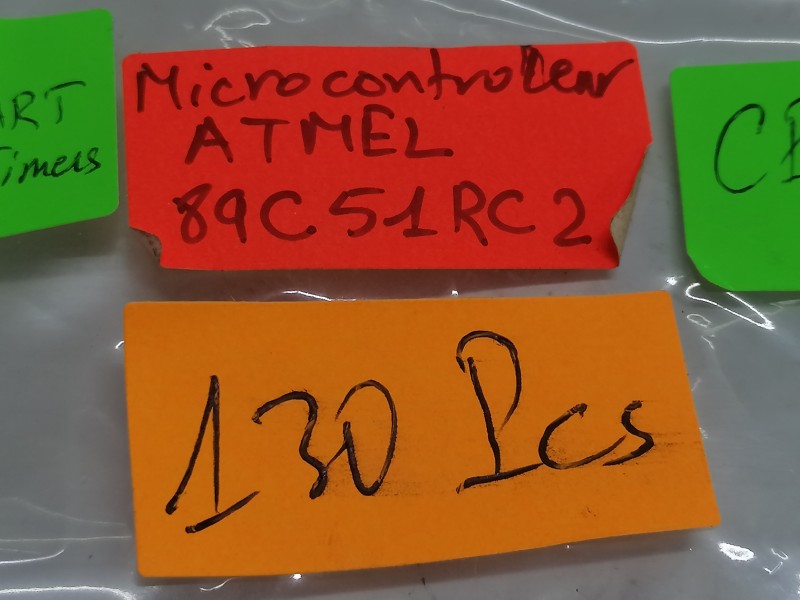 ART
Timers
Microcontroleur
ATMEL
89C51RC2
130 Pcs